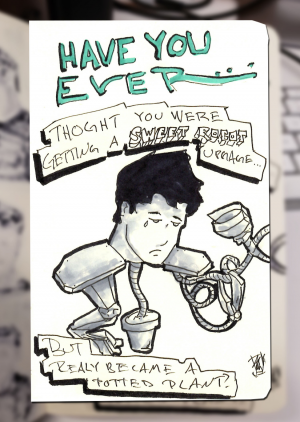 HAVE YOU
EVER...
THOGHT YOU WERE
GETTING A SWEET ROBOT
UPPAGE...
BUT
REALY BECAME A
POTTED PLANT?